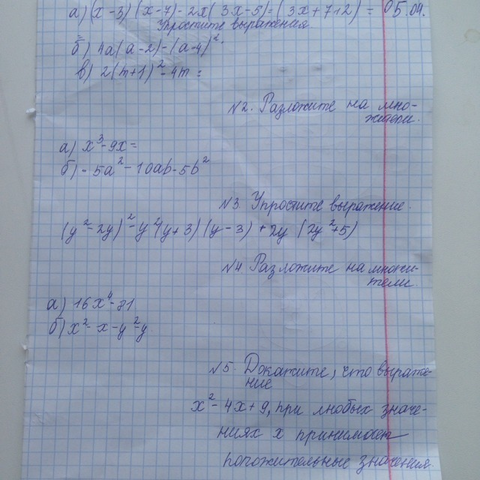 а) (x-3)(x-7)-2x(3x-5)=(3x+7+2)= 05.04.
Упростите выражения
б) 4а(а-2)-(а-4)²=
в) 2(m+1)²-4m=
N2. Разложите на мно-
жители.
а) x³-9x=
б) -5a²-10ab-5b²
N3 Упростите выражение.
(y²-2y)²-y²(y+3)(y-3)+2y(2y²+5)
N4 Разложите на множи-
тели.
а) 16x⁴-81
б) x²-x-y²-y
N5 Докажите, что выраже-
ние
x²-4x+9, при любых значе-
ниях x принимает
положительные значения